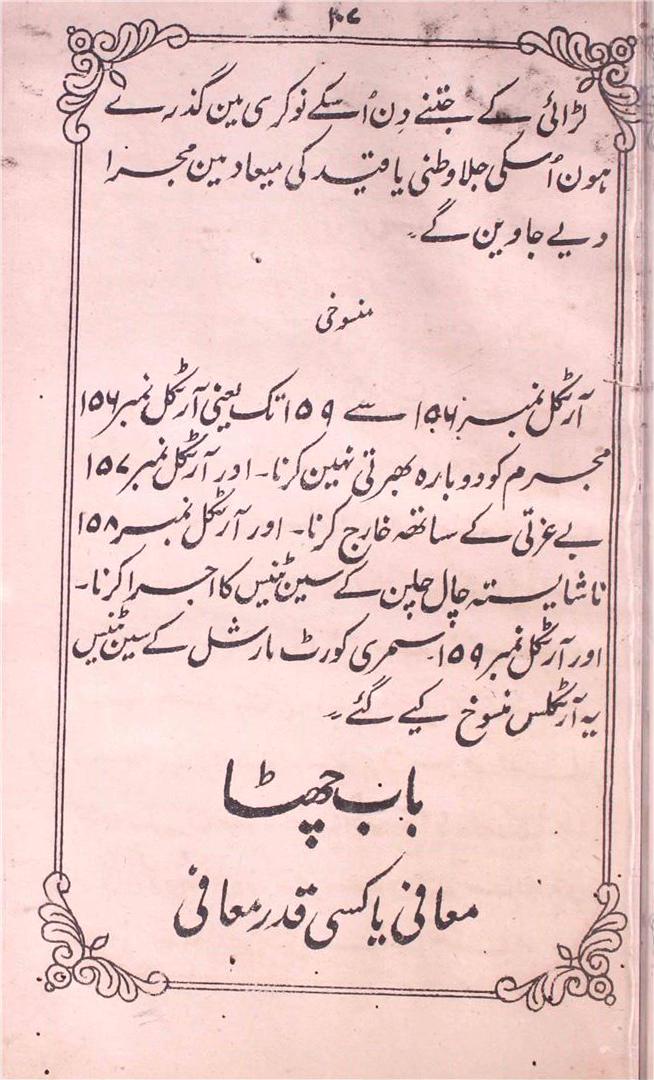 ۴۸
لڑائی کے جتنے دِن اُسکے نوکری مین گذرے
ہون اُسکی جلاوطنی یا قید کی میعاد مین مجرا
دیے جاوین گے۔
منسوخی
آرٹکل نمبر ۱۵۶ سے ۱۵۹ تک یعنی آرٹکل نمبر ۱۵۶
مجرم کو دوبارہ بھرتی نہین کرنا۔ اور آرٹکل نمبر ۱۵۷
بے عزتی کے ساتھ خارج کرنا۔ اور آرٹکل نمبر ۱۵۸
ناشایستہ چال چلن کے سین ٹنیس کا اجرا کرنا۔
اور آرٹکل نمبر ۱۵۹۔ سمری کورٹ مارشل کے سین ٹنیس
یہ آرٹکلس منسوخ کیے گئے۔
باب چھٹا
معافی یا کسی قدر معافی